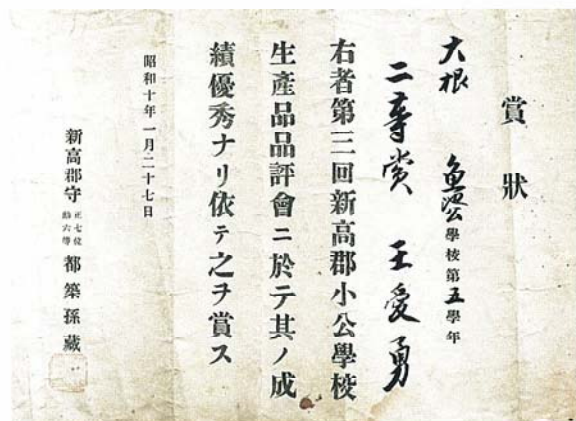 賞狀
大根 魚池公學校第五學年
二等賞 王愛勇
右者第三回新高郡小公學校
生產品品評會ニ於テ其ノ成
績優秀ナリ依テ之ヲ賞ス
昭和十年一月二十七日
新高郡守 正七位勲六等 都築孫藏